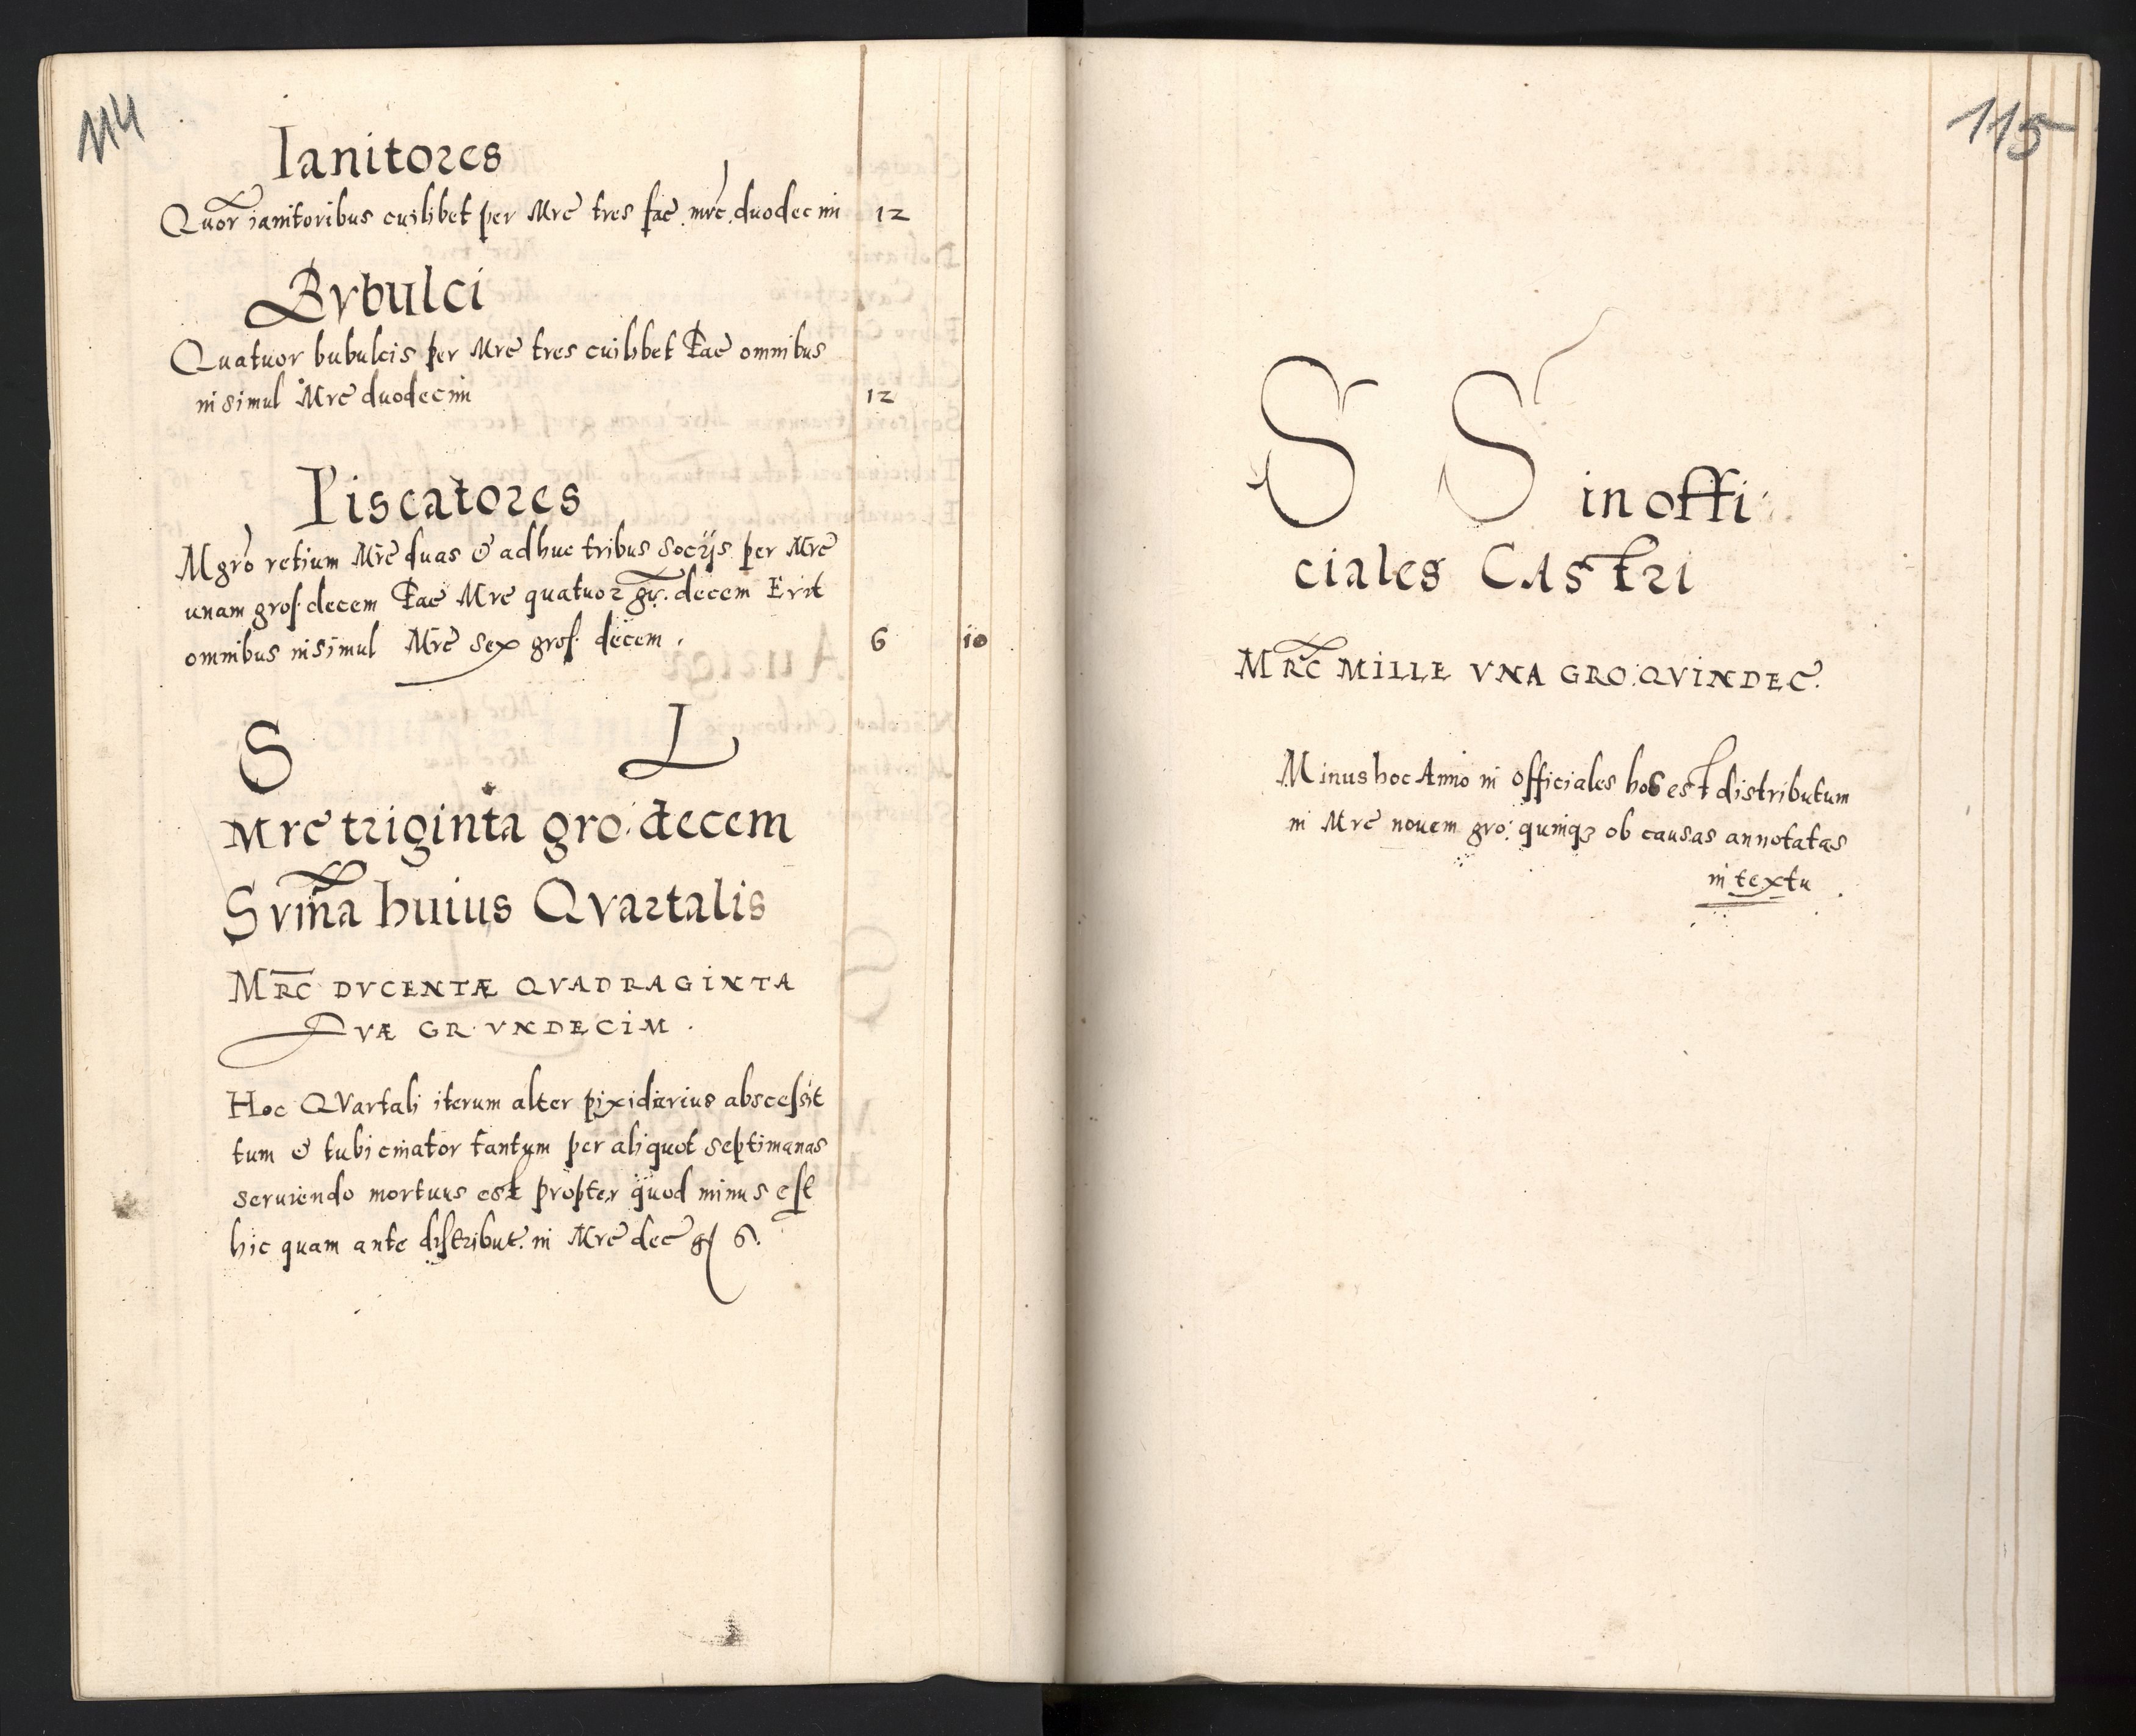 114
Ianitores
Quor ianitoribus cuilibet per Mrc tres fac. mrc. duodecim 12
Bvbulci
Quatuor bubulcis per Mrc tres cuilibet Fac omnibus
insimul Mrc duodecim 12
Piscatores
Mgro retium Mrc duas & adhuc tribus socijs per Mrc
unam gros. decem Fac Mrc quatuor gr. decem Erit
omnibus insimul Mrc sex gros. decem. 6 10
S L
Mrc triginta gro: decem
Svma huius Qvartalis
MRC DVCENTÆ QVADRAGINTA
DVÆ GR. VNDECIM.
Hoc QVartali iterum alter pixidarius abscessit
tum & tubicinator tantum per aliquot septimanas
seruiendo mortuus est propter quod minus est
hic quam ante distribut. in Mrc dec gs 6.
115
S S in offi
ciales CAstri
MRC MILLE VNA GRO. QVINDEC.
Minus hoc Anno in officiales hos est distributum
in Mrc nouem gro: quinqz ob causas annotatas
in textu